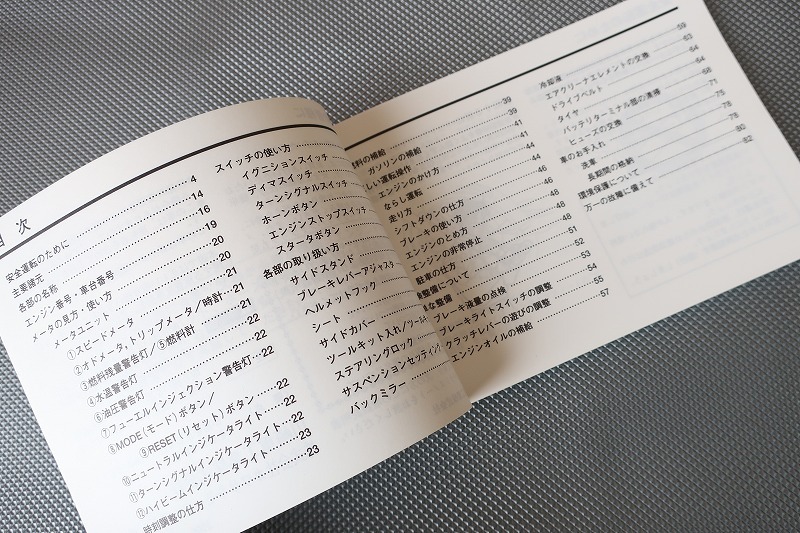 目次
安全運転のために 4
主要諸元 14
各部の名称 16
エンジン番号・車台番号 19
メータの見方・使い方 20
メータユニット 20
①スピードメータ 21
②オドメータ、トリップメータ/時計 21
③燃料残量警告灯/⑤燃料計 21
④水温警告灯 22
⑥油圧警告灯 22
⑦フューエルインジェクション警告灯 22
⑧MODE(モード)ボタン/
⑨RESET(リセット)ボタン 22
⑩ニュートラルインジケータライト 22
⑪ターンシグナルインジケータライト 22
⑫ハイビームインジケータライト 23
時刻調整の仕方 23
スイッチの使い方
イグニションスイッチ
ディマスイッチ
ターンシグナルスイッチ
ホーンボタン
エンジンストップスイッチ
スタータボタン
各部の取り扱い方
サイドスタンド
ブレーキレバーアジャスタ
ヘルメットフック
シート
サイドカバー
ツールキット入れ/ツール
ステアリングロック
サスペンションセッティング
バックミラー
燃料の補給 39
ガソリンの補給 39
しい運転操作 41
エンジンのかけ方 41
ならし運転 44
走り方 44
シフトダウンの仕方 46
ブレーキの使い方 46
エンジンのとめ方 48
エンジンの非常停止 48
駐車の仕方 48
検整備について 51
な整備 52
ブレーキ液量の点検 53
ブレーキライトスイッチの調整 54
クラッチレバーの遊びの調整 55
エンジンオイルの補給 57
冷却液 59
エアクリーナエレメントの交換 63
ドライブベルト 64
タイヤ 64
バッテリターミナル部の清掃 68
ヒューズの交換 71
車のお手入れ 75
洗車 78
長期間の格納 78
環境保護について 80
万一の故障に備えて 82